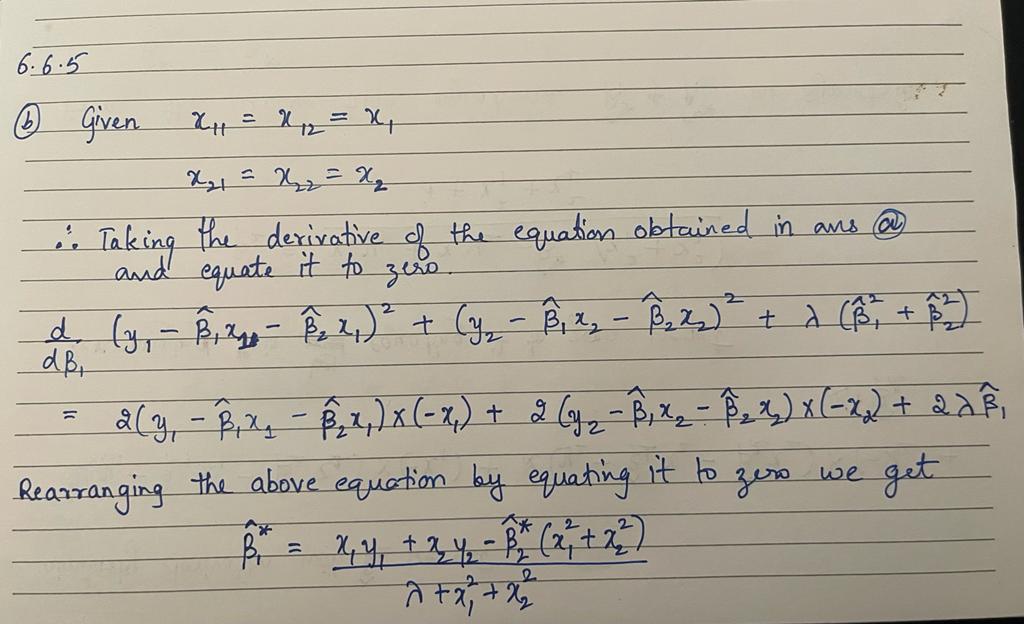 6.6.5
ⓑ Given x₁₁ = x₁₂ = x₁
x₂₁ = x₂₂ = x₂
∴ Taking the derivative of the equation obtained in ans ⓐ
and equate it to zero.
d/dβ₁ (y₁ − β̂₁x₁ − β̂₂x₁)² + (y₂ − β̂₁x₂ − β̂₂x₂)² + λ (β̂₁² + β̂₂²)
= 2(y₁ − β̂₁x₁ − β̂₂x₁)×(−x₁) + 2(y₂ − β̂₁x₂ − β̂₂x₂)×(−x₂) + 2λβ̂₁
Rearranging the above equation by equating it to zero we get
β̂₁* = x₁y₁ + x₂y₂ − β̂₂*(x₁² + x₂²)
λ + x₁² + x₂²